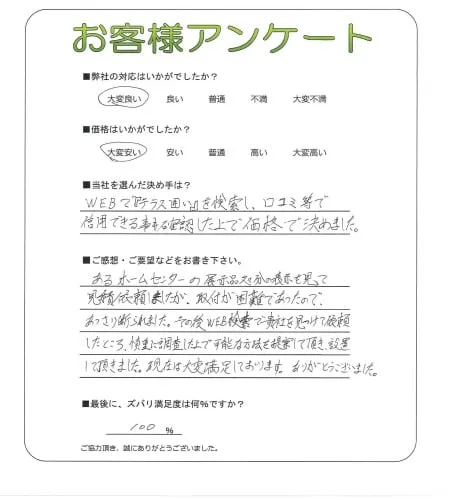 お客様アンケート
■弊社の対応はいかがでしたか？
大変良い 良い 普通 不満 大変不満
■価格はいかがでしたか？
大変安い 安い 普通 高い 大変高い
■当社を選んだ決め手は？
WEBで『テラス囲い』を検索し、口コミ等で
信用できる事を確認した上で価格で決めました。
■ご感想・ご要望などをお書き下さい。
あるホームセンターの展示品の表示を見て
見積依頼したが、取付が困難であったので、
あっさり断られました。その後WEB検索で貴社を見つけて依頼
したところ、慎重に調査した上で可能な方法を提案して頂き、設置
して頂きました。現在は大変満足しております。ありがとうございました。
■最後に、ズバリ満足度は何%ですか？
100 %
ご協力頂き、誠にありがとうございました。